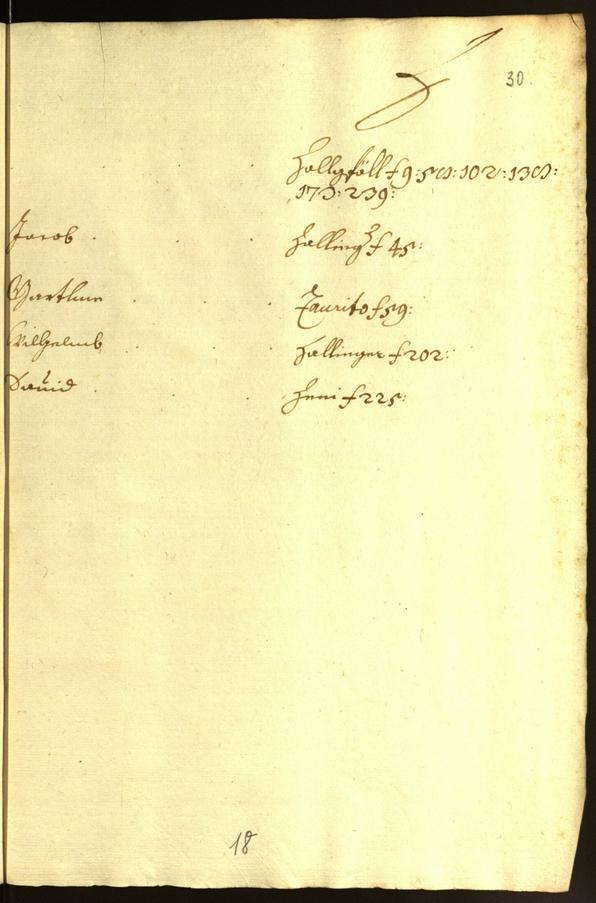 30.
Hallgföll f 9: 50: 102: 130:
173: 239:
Jacob . . . Halling f 45:
Barthlme . . . Taurito f 59:
Wilhelmb . . . Hallinger f 202:
Dauid . . . Heni f 225:
18